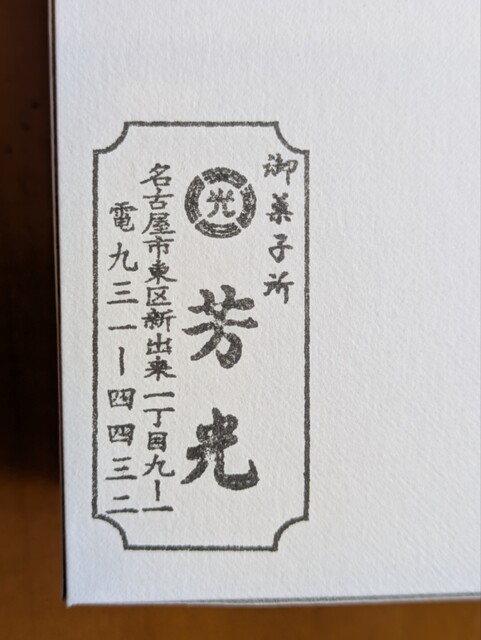 御菓子所
光
芳光
名古屋市東区新出来一丁目九ー一
電九三一ー四四三二